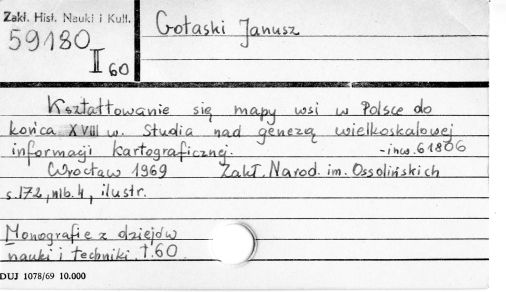 Zakł. Hist. Nauki i Kult.
59180
II 60
Gołaski Janusz
Kształtowanie się mapy wsi w Polsce do
końca XVIII w. Studia nad genezą wielkoskalowej
informacji kartograficznej. -inw. 61806
Wrocław 1969 Zakł. Narod. im. Ossolińskich
s. 172, nlb. 4, ilustr.
Monografie z dziejów
nauki i techniki, t. 60
DUJ 1078/69 10.000